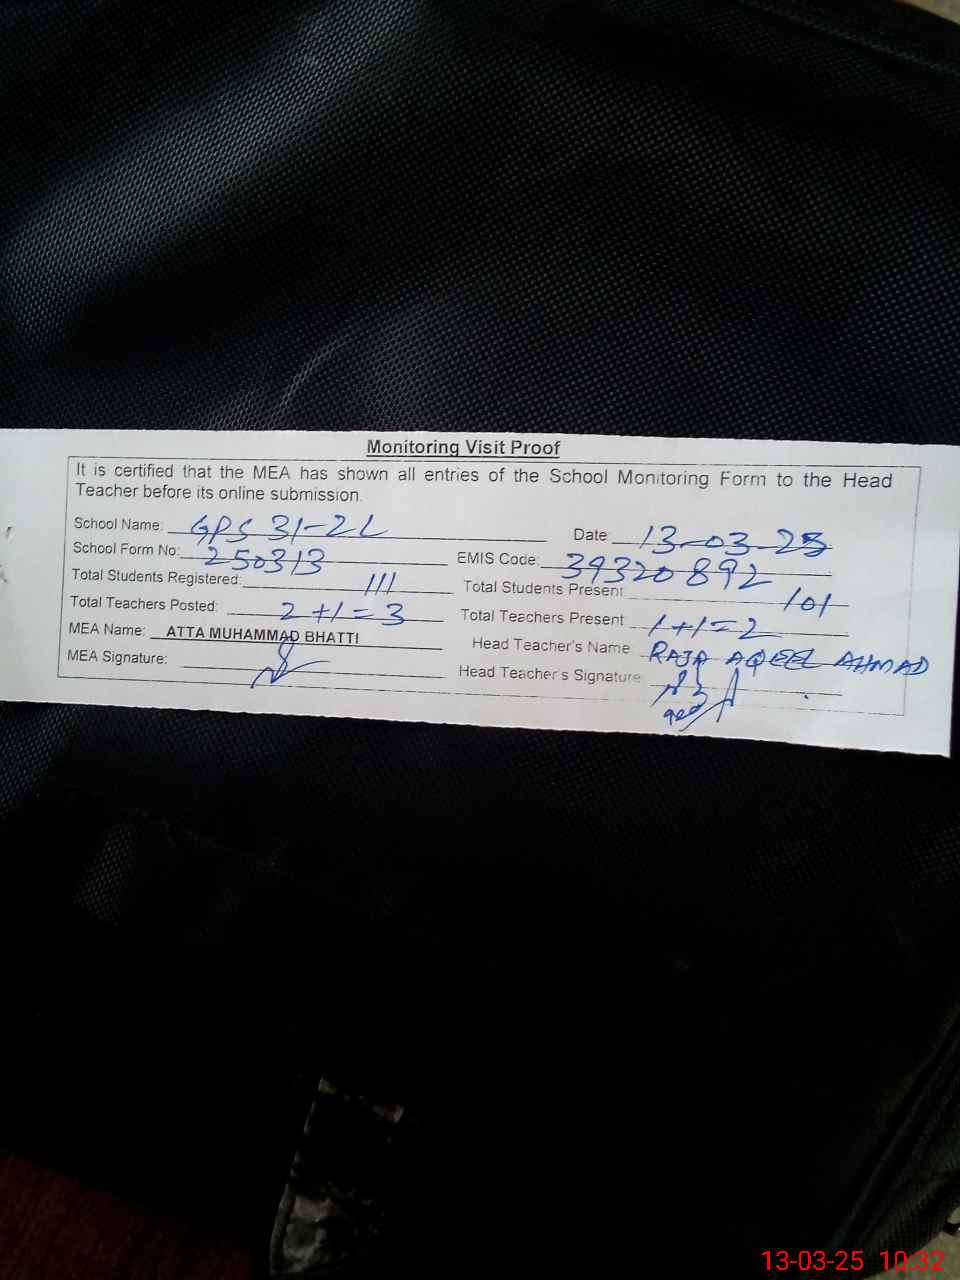 Monitoring Visit Proof
It is certified that the MEA has shown all entries of the School Monitoring Form to the Head
Teacher before its online submission.
School Name: GPS 31-2L Date: 13-03-25
School Form No: 250313 EMIS Code: 39320892
Total Students Registered: 111 Total Students Present: 101
Total Teachers Posted: 2+1=3 Total Teachers Present 1+1=2
MEA Name: ATTA MUHAMMAD BHATTI Head Teacher's Name RAJA AQEEL AHMAD
MEA Signature: Head Teacher's Signature:
13-03-25 10:32